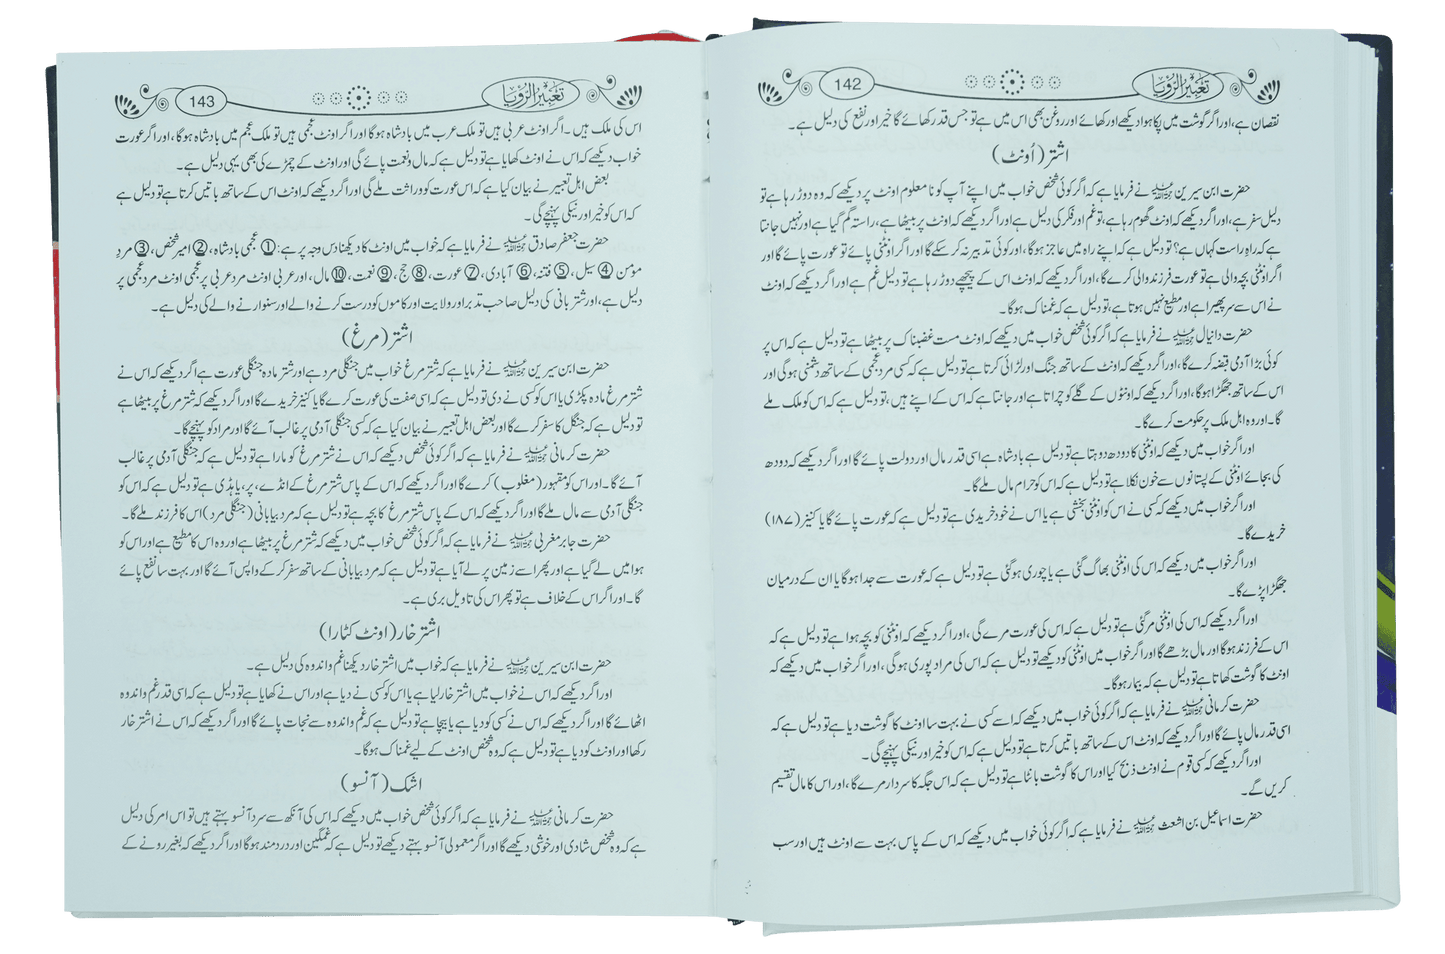 142
تعبیر الرؤیا
نقصان ہے، اور اگر گوشت میں پکا ہوا دیکھے اور کھائے اور روغن بھی اس میں ہے تو جس قدر کھائے گا خیر اور نفع کی دلیل ہے۔
اشتر (اُونٹ)
حضرت ابن سیرین رحمۃ اللہ علیہ نے فرمایا ہے کہ اگر کوئی شخص خواب میں اپنے آپ کو نا معلوم اونٹ پر دیکھے کہ وہ دوڑ رہا ہے تو
دلیل سفر ہے، اور اگر دیکھے کہ اونٹ گھوم رہا ہے، تو غم اور فکر کی دلیل ہے اور اگر دیکھے کہ اونٹ پر بیٹھا ہے، راستہ گم گیا ہے اور نہیں جانتا
ہے کہ راہِ راست کہاں ہے؟ تو دلیل ہے کہ اپنے راہ میں عاجز ہوگا، اور کوئی تدبیر نہ کر سکے گا اور اگر اونٹنی پائے تو عورت پائے گا اور
اگر اونٹنی بچہ والی ہے تو عورت فرزند والی کرے گا، اور اگر دیکھے کہ اونٹ اس کے پیچھے دوڑ رہا ہے تو دلیل غم ہے اور اگر دیکھے کہ اونٹ
نے اس سے سر پھیرا ہے اور مطیع نہیں ہوتا ہے، تو دلیل ہے کہ غمناک ہوگا۔
حضرت دانیال علیہ السلام نے فرمایا ہے کہ اگر کوئی شخص خواب میں دیکھے کہ اونٹ مست غضبناک پر بیٹھا ہے تو دلیل ہے کہ اس پر
کوئی بڑا آدمی قبضہ کرے گا، اور اگر دیکھے کہ اونٹ کے ساتھ جنگ اور لڑائی کرتا ہے تو دلیل ہے کہ کسی مرد عجمی کے ساتھ دشمنی ہوگی اور
اس کے ساتھ جھگڑا ہوگا، اور اگر دیکھے کہ اونٹوں کے گلے کو چراتا ہے اور جانتا ہے کہ اس کے اپنے ہیں، تو دلیل ہے کہ اس کو ملک ملے
گا۔ اور وہ اہل ملک پر حکومت کرے گا۔
اور اگر خواب میں دیکھے کہ اونٹنی کا دودھ دوہتا ہے تو دلیل ہے بادشاہ ہے اسی قدر مال اور دولت پائے گا اور اگر دیکھے کہ دودھ
کی بجائے اونٹنی کے پستانوں سے خون نکلا ہے تو دلیل ہے کہ اس کو حرام مال ملے گا۔
اور اگر خواب میں دیکھے کہ کسی نے اس کو اونٹنی بخشی ہے یا اس نے خود خریدی ہے تو دلیل ہے کہ عورت پائے گا یا کنیز (۱۸۷)
خریدے گا۔
اور اگر خواب میں دیکھے کہ اس کی اونٹنی بھاگ گئی ہے یا چوری ہوگئی ہے تو دلیل ہے کہ عورت سے جدا ہوگا یا ان کے درمیان
جھگڑا پڑے گا۔
اور اگر دیکھے کہ اس کی اونٹنی مر گئی ہے تو دلیل ہے کہ اس کی عورت مرے گی، اور اگر دیکھے کہ اونٹنی کو بچہ ہوا ہے تو دلیل ہے کہ
اس کے فرزند ہوگا اور مال بڑھے گا اور اگر خواب میں اونٹنی کو دیکھے تو دلیل ہے کہ اس کی مراد پوری ہوگی، اور اگر خواب میں دیکھے کہ
اونٹ کا گوشت کھاتا ہے تو دلیل ہے کہ بیمار ہوگا۔
حضرت کرمانی رحمۃ اللہ علیہ نے فرمایا ہے کہ اگر کوئی خواب میں دیکھے کہ اسے کسی نے بہت سا اونٹ کا گوشت دیا ہے تو دلیل ہے کہ
اسی قدر مال پائے گا اور اگر دیکھے کہ اونٹ اس کے ساتھ باتیں کرتا ہے تو دلیل ہے کہ اس کو خیر اور نیکی پہنچے گی۔
اور اگر دیکھے کہ کسی قوم نے اونٹ ذبح کیا اور اس کا گوشت بانٹا ہے تو دلیل ہے کہ اس جگہ کا سردار مرے گا، اور اس کا مال تقسیم
کریں گے۔
حضرت اسماعیل بن اشعث رحمۃ اللہ علیہ نے فرمایا ہے کہ اگر کوئی خواب میں دیکھے کہ اس کے پاس بہت سے اونٹ ہیں اور سب
143
تعبیر الرؤیا
اس کی ملک ہیں۔ اگر اونٹ عربی ہیں تو ملک عرب میں بادشاہ ہوگا اور اگر اونٹ عجمی ہیں تو ملک عجم میں بادشاہ ہوگا، اور اگر عورت
خواب دیکھے کہ اس نے اونٹ کھایا ہے تو دلیل ہے کہ مال و نعمت پائے گی اور اونٹ کے چمڑے کی بھی یہی دلیل ہے۔
بعض اہل تعبیر نے بیان کیا ہے کہ اس عورت کو وراثت ملے گی اور اگر دیکھے کہ اونٹ اس کے ساتھ باتیں کرتا ہے تو دلیل ہے
کہ اس کو خیر اور نیکی پہنچے گی۔
حضرت جعفر صادق رحمۃ اللہ علیہ نے فرمایا ہے کہ خواب میں اونٹ کا دیکھنا دس وجہ پر ہے: ① عجمی بادشاہ، ② امیر شخص، ③ مردِ
مؤمن ④ سیل، ⑤ فتنہ، ⑥ آبادی، ⑦ عورت، ⑧ حج، ⑨ نعمت، ⑩ مال، اور عربی اونٹ مرد عربی پر عجمی اونٹ مرد عجمی پر
دلیل ہے، اور شتر بانی کی دلیل صاحب تدبر اور ولایت اور کاموں کو درست کرنے والے اور سنوارنے والے کی دلیل ہے۔
اشتر (مرغ)
حضرت ابن سیرین رحمۃ اللہ علیہ نے فرمایا ہے کہ شتر مرغ خواب میں جنگلی مرد ہے اور شتر مادہ جنگلی عورت ہے اگر دیکھے کہ اس نے
شتر مرغ مادہ پکڑی یا اس کو کسی نے دی تو دلیل ہے کہ اسی صفت کی عورت کرے گا یا کنیز خریدے گا اور اگر دیکھے کہ شتر مرغ پر بیٹھا ہے
تو دلیل ہے کہ جنگل کا سفر کرے گا اور بعض اہل تعبیر نے بیان کیا ہے کہ کسی جنگلی آدمی پر غالب آئے گا اور مراد کو پہنچے گا۔
حضرت کرمانی رحمۃ اللہ علیہ نے فرمایا ہے کہ اگر کوئی شخص دیکھے کہ اس نے شتر مرغ کو مارا ہے تو دلیل ہے کہ جنگلی آدمی پر غالب
آئے گا۔ اور اس کو مقہور (مغلوب) کرے گا اور اگر دیکھے کہ اس کے پاس شتر مرغ کے انڈے، پر، یا ہڈی ہے تو دلیل ہے کہ اس کو
جنگلی آدمی سے مال ملے گا اور اگر دیکھے کہ اس کے پاس شتر مرغ کا بچہ ہے تو دلیل ہے کہ مرد بیابانی (جنگلی مرد) اس کا فرزند ملے گا۔
حضرت جابر مغربی رحمۃ اللہ علیہ نے فرمایا ہے کہ اگر کوئی شخص خواب میں دیکھے کہ شتر مرغ پر بیٹھا ہے اور وہ اس کا مطیع ہے اور اس کو
ہوا میں لے گیا ہے اور پھر اسے زمین پر لے آیا ہے تو دلیل ہے کہ مرد بیابانی کے ساتھ سفر کر کے واپس آئے گا اور بہت سا نفع پائے
گا۔ اور اگر اس کے خلاف ہے تو پھر اس کی تاویل بری ہے۔
اشتر خار (اونٹ کٹارا)
حضرت ابن سیرین رحمۃ اللہ علیہ نے فرمایا ہے کہ خواب میں اشتر خار دیکھنا غم و اندوہ کی دلیل ہے۔
اور اگر دیکھے کہ اس نے خواب میں اشتر خار لیا ہے یا اس کو کسی نے دیا ہے اور اس نے کھایا ہے تو دلیل ہے کہ اسی قدر غم و اندوہ
اٹھائے گا اور اگر دیکھے کہ اس نے کسی کو دیا ہے یا بیچا ہے تو دلیل ہے کہ غم و اندوہ سے نجات پائے گا اور اگر دیکھے کہ اس نے اشتر خار
رکھا اور اونٹ کو دیا ہے تو دلیل ہے کہ وہ شخص اونٹ کے لیے غمناک ہوگا۔
اشک (آنسو)
حضرت کرمانی رحمۃ اللہ علیہ نے فرمایا ہے کہ اگر کوئی شخص خواب میں دیکھے کہ اس کی آنکھ سے سرد آنسو بہتے ہیں تو اس امر کی دلیل
ہے کہ وہ شخص شادی اور خوشی دیکھے گا اور اگر معمولی آنسو بہتے دیکھے تو دلیل ہے کہ غمگین اور دردمند ہوگا اور اگر دیکھے کہ بغیر رونے کے